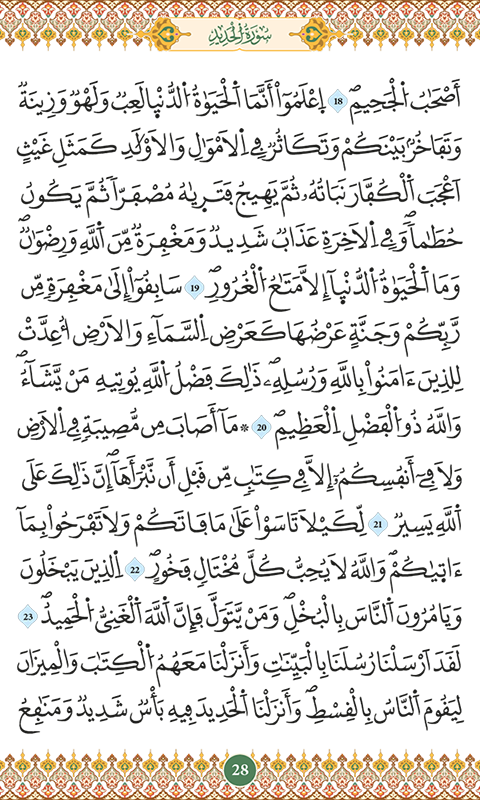 سُورَةُ الْحَدِيدِ
أَصْحَٰبُ اُ۬لْجَحِيمِۖ 18 اِ۪عْلَمُوٓاْ أَنَّمَا اَ۬لْحَيَوٰةُ اُ۬لدُّنْي۪ا لَعِبٞ وَلَهْوٞ وَزِينَةٞ
وَتَفَاخُرُۢ بَيْنَكُمْ وَتَكَاثُرٞ فِے اِ۬لَامْوَٰلِ وَالَاوْلَٰدِ كَمَثَلِ غَيْثٍ
اَعْجَبَ اَ۬لْكُفَّارَ نَبَاتُهُۥ ثُمَّ يَهِيجُ فَتَر۪يٰهُ مُصْفَرّاٗ ثُمَّ يَكُونُ
حُطَٰماٗۖ وَفِے اِ۬لَاخِرَةِ عَذَابٞ شَدِيدٞ وَمَغْفِرَةٞ مِّنَ اَ۬للَّهِ وَرِضْوَٰنٞۖ
وَمَا اَ۬لْحَيَوٰةُ اُ۬لدُّنْي۪آ إِلَّا مَتَٰعُ اُ۬لْغُرُورِۖ 19 سَابِقُوٓاْ إِلَىٰ مَغْفِرَةٖ مِّن
رَّبِّكُمْ وَجَنَّةٍ عَرْضُهَا كَعَرْضِ اِ۬لسَّمَآءِ وَالَارْضِ أُعِدَّتْ
لِلذِينَ ءَامَنُواْ بِاللَّهِ وَرُسُلِهِۦۖ ذَٰلِكَ فَضْلُ اُ۬للَّهِ يُوتِيهِ مَنْ يَّشَآءُۖ
وَاللَّهُ ذُو اُ۬لْفَضْلِ اِ۬لْعَظِيمِۖ 20 * مَآ أَصَابَ مِن مُّصِيبَةٖ فِے اِ۬لَارْضِ
وَلَا فِےٓ أَنفُسِكُمُۥٓ إِلَّا فِے كِتَٰبٖ مِّن قَبْلِ أَن نَّبْرَأَهَآۖ إِنَّ ذَٰلِكَ عَلَى
اَ۬للَّهِ يَسِيرٞۖ 21 لِّكَيْلَا تَاسَوْاْ عَلَىٰ مَا فَاتَكُمْ وَلَا تَفْرَحُواْ بِمَآ
ءَات۪يٰكُمْۖ وَاللَّهُ لَا يُحِبُّ كُلَّ مُخْتَالٖ فَخُورٍۖ 22 اِ۬لذِينَ يَبْخَلُونَ
وَيَامُرُونَ اَ۬لنَّاسَ بِالْبُخْلِۖ وَمَنْ يَّتَوَلَّ فَإِنَّ اَ۬للَّهَ اَ۬لْغَنِيُّ اُ۬لْحَمِيدُۖ 23
لَقَدَ اَرْسَلْنَا رُسُلَنَا بِالْبَيِّنَٰتِ وَأَنزَلْنَا مَعَهُمُ اُ۬لْكِتَٰبَ وَالْمِيزَانَ
لِيَقُومَ اَ۬لنَّاسُ بِالْقِسْطِۖ وَأَنزَلْنَا اَ۬لْحَدِيدَ فِيهِ بَأْسٞ شَدِيدٞ وَمَنَٰفِعُ
28